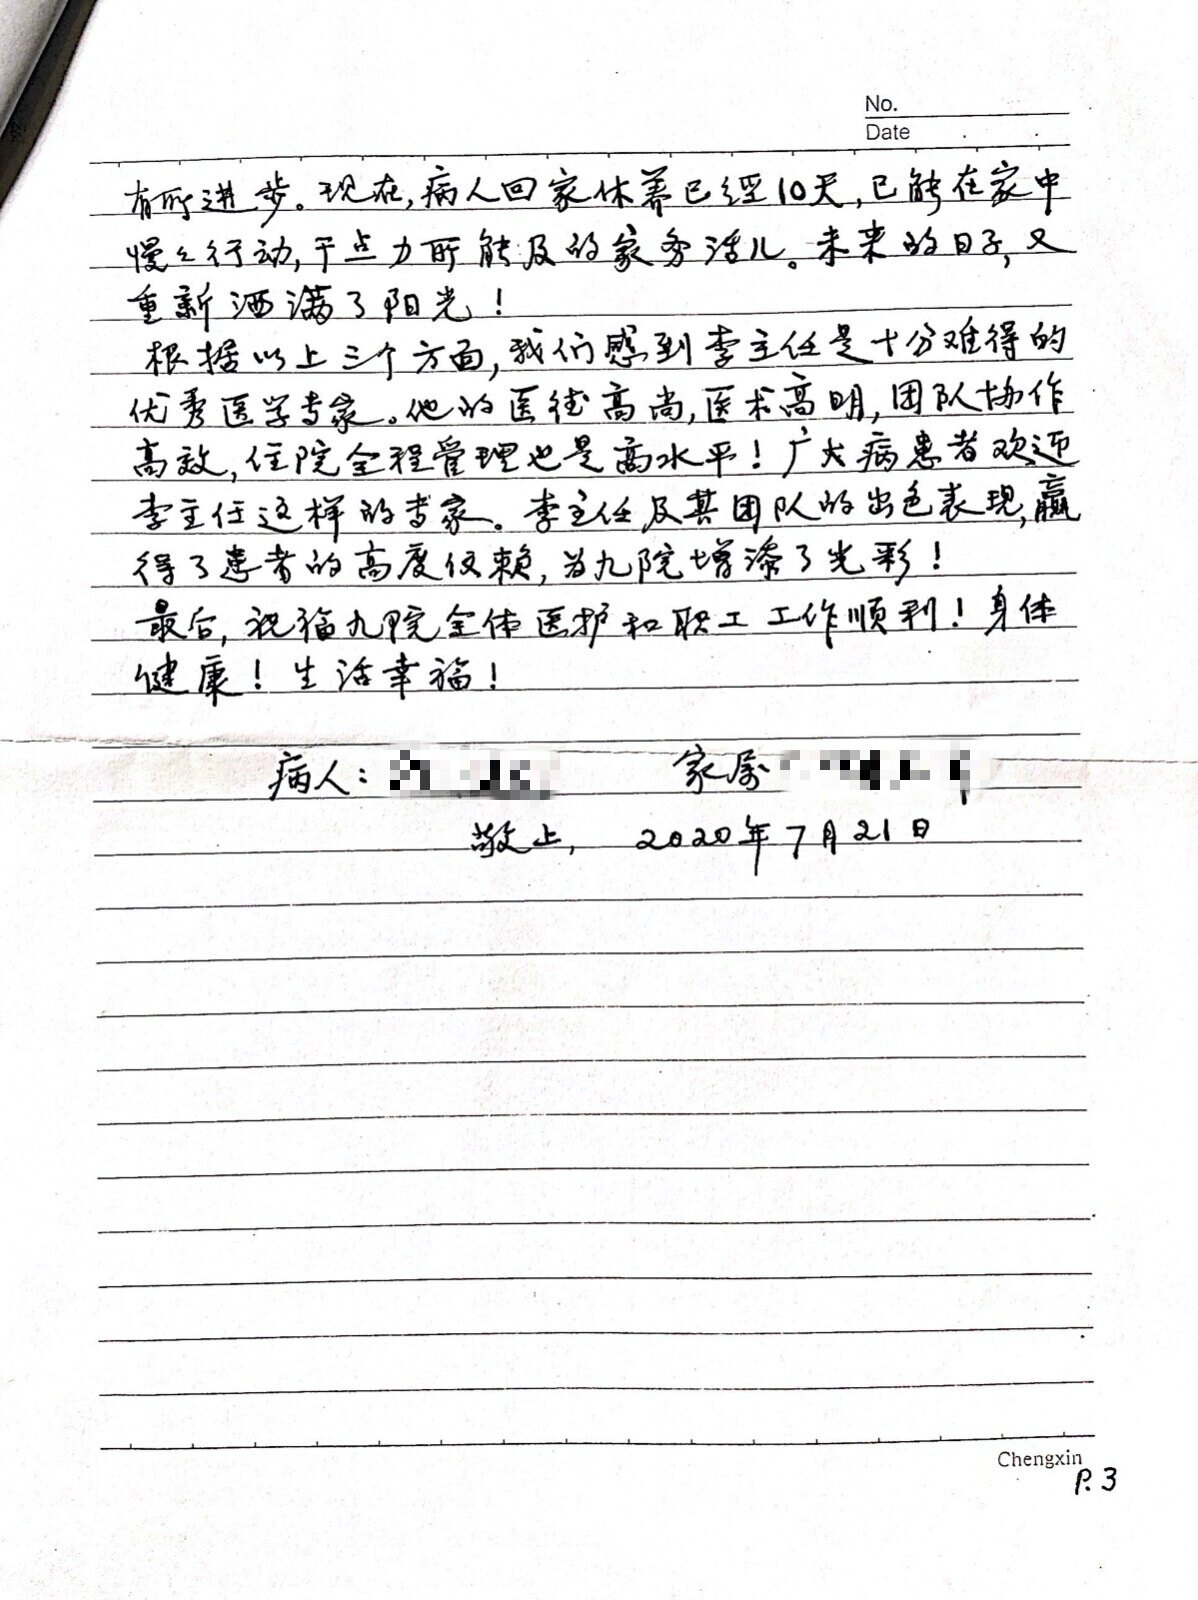 No.
Date
有所进步。现在,病人回家休养已经10天,已能在家中
慢々行动,干点力所能及的家务活儿。未来的日子,又
重新洒满了阳光!
根据以上三个方面,我们感到李主任是十分难得的
优秀医学专家。他的医德高尚,医术高明,团队协作
高效,住院全程管理也是高水平!广大病患者欢迎
李主任这样的专家。李主任及其团队的出色表现,赢
得了患者的高度信赖,为九院增添了光彩!
最后,祝福九院全体医护和职工工作顺利!身体
健康!生活幸福!
病人: 家属
敬上, 2020年7月21日
Chengxin
P.3